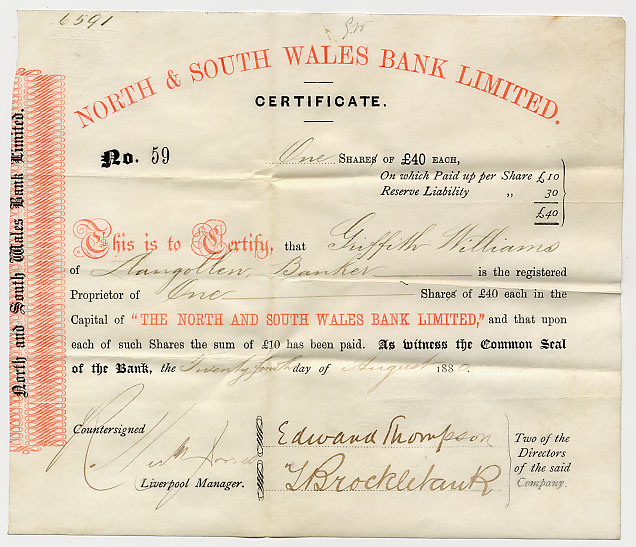 6591
G.W
NORTH & SOUTH WALES BANK LIMITED.
CERTIFICATE.
No. 59
One SHARES OF £40 EACH,
On which Paid up per Share £10
Reserve Liability „ 30
£40
This is to Certify, that Griffith Williams
of Llangollen Banker is the registered
Proprietor of One Shares of £40 each in the
Capital of "THE NORTH AND SOUTH WALES BANK LIMITED," and that upon
each of such Shares the sum of £10 has been paid. As witness the Common Seal
of the Bank, the Twenty fourth day of August 1880.
Countersigned
Liverpool Manager.
Edward Thompson
T Brocklebank
Two of the
Directors
of the said
Company.
North and South Wales Bank Limited.